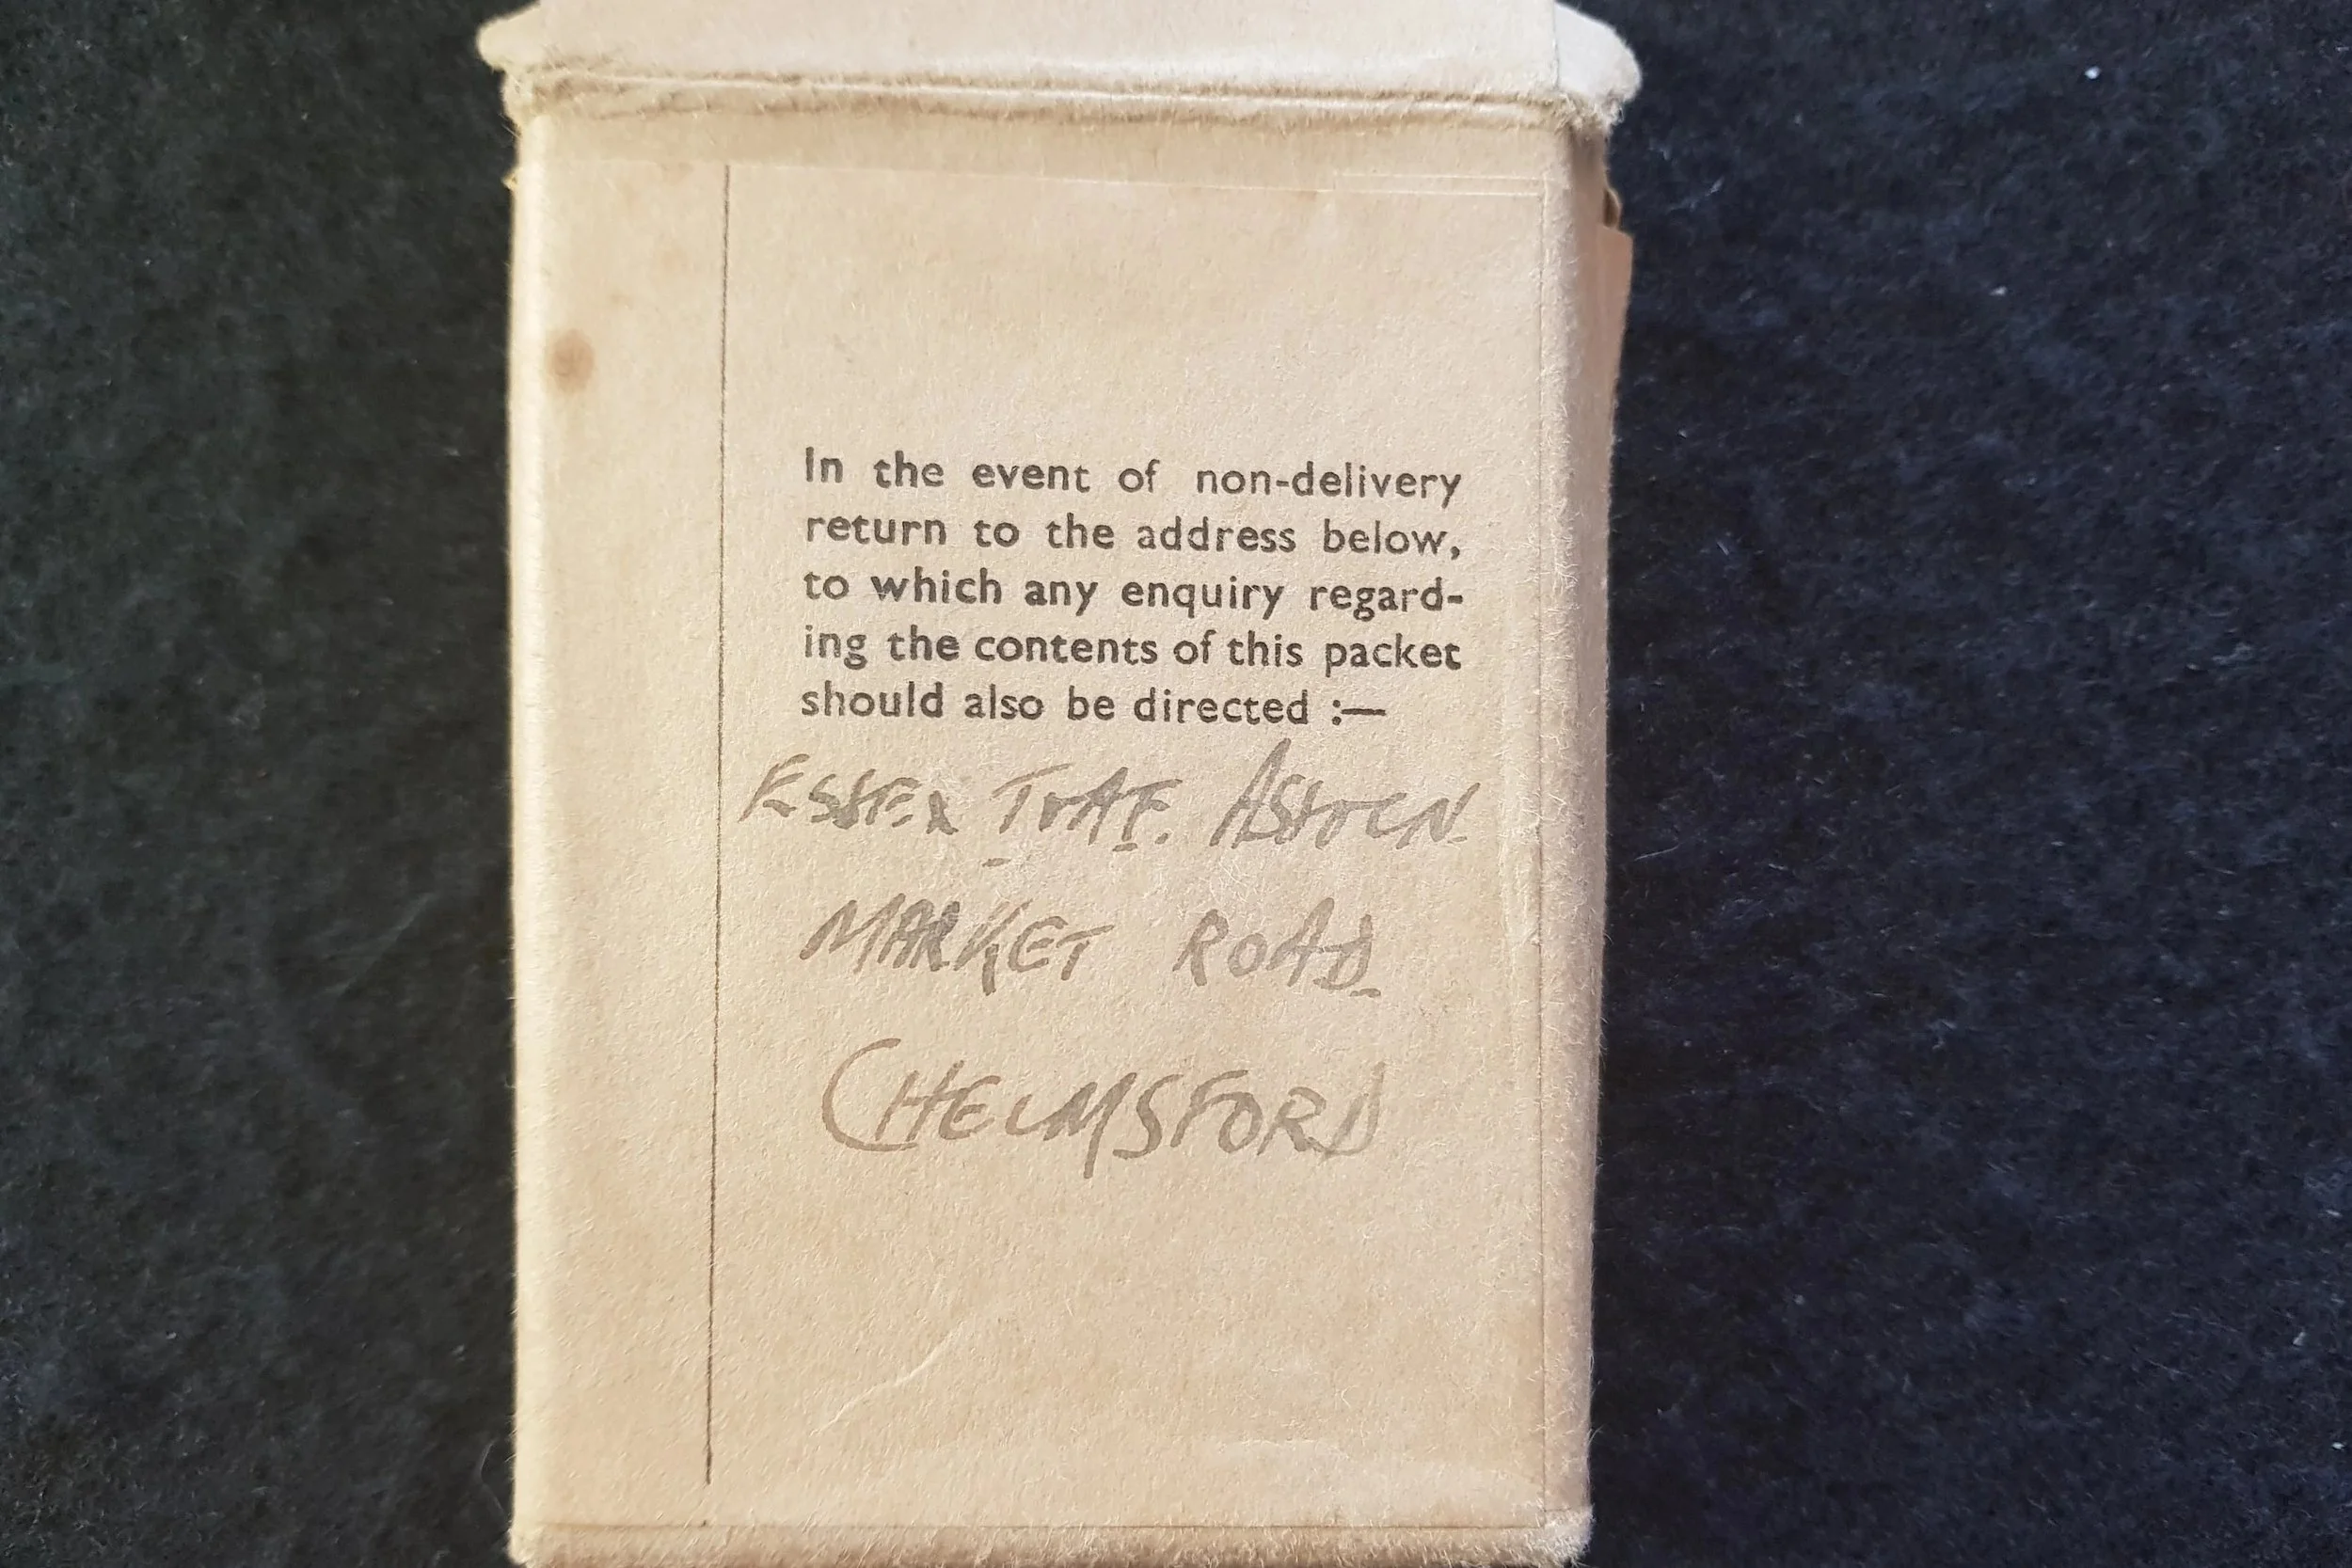 In the event of non-delivery
return to the address below,
to which any enquiry regard-
ing the contents of this packet
should also be directed :—
ESSEX T&AF. ASSOCN.
MARKET ROAD
CHELMSFORD